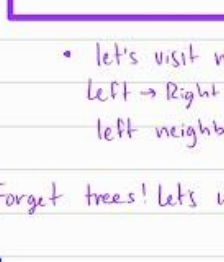 • let's visit
Left → Right
left
Forget trees! Let's